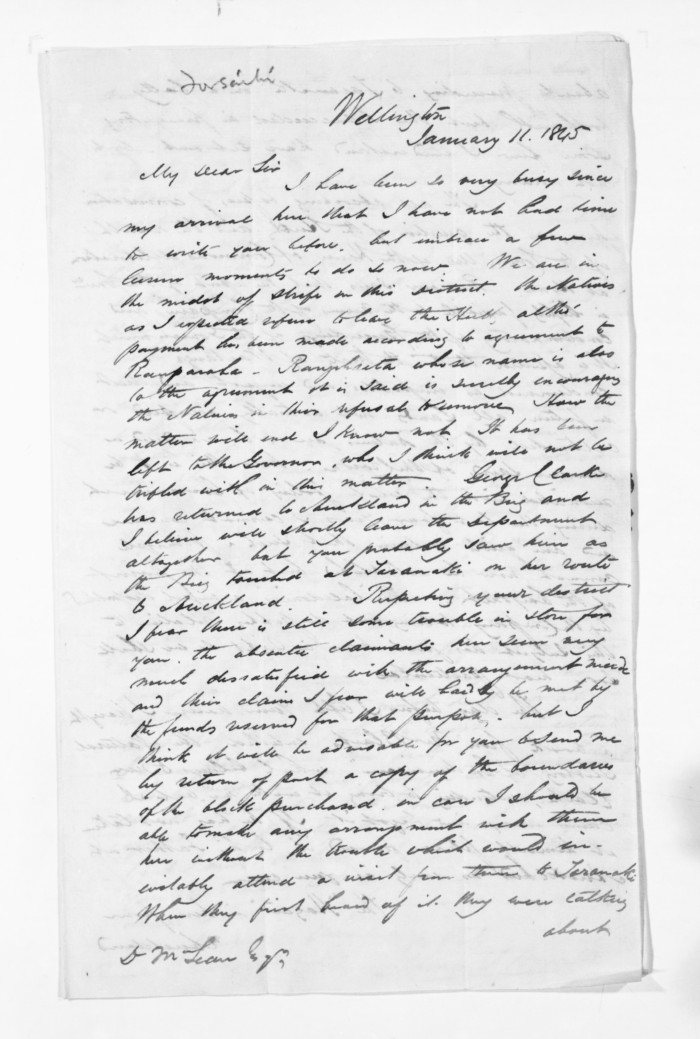 Wellington
January 11. 1845
My Dear Sir
I have been so very busy since
my arrival here that I have not had time
to write you before. but embrace a few
leisure moments to do so now. We are in
the midst of strife in this District. the Natives
as I expected refuse to leave the Hutt altho'
payment has been made according to agreement to
Rauparaha - Rangihaeta whose name is also
to the agreement it is said is secretly encouraging
the Natives in this refusal to remove How the
matter will end I know not It has been
left to the Governor, who I think will not be
trifled with in this matter George Clarke
has returned to Auckland in the Brig and
I believe will shortly leave the Department
altogether but you probably saw him as
the Brig touched at Taranaki on her route
to Auckland. Respecting your district
I fear there is still some trouble in store for
you. the absentee claimants here seem very
much dissatisfied with the arrangement made
and their claims I fear will hardly be met by
the funds reserved for that purpose, - but I
think it will be advisable for you to send me
by return of post a copy of the boundaries
of the block purchased. in case I should be
able to make any arrangement with them
here without the trouble which would in-
evitably attend a visit from them to Taranaki
When they first heard of it. they were talking
about
D McLean Esqr